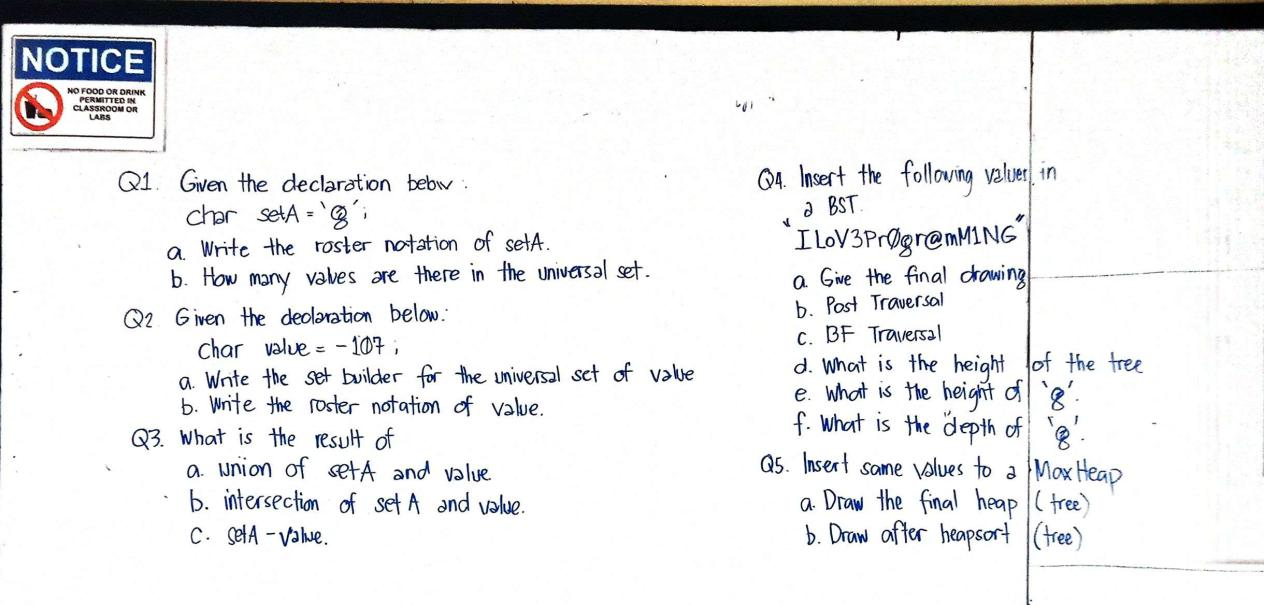 NOTICE
NO FOOD OR DRINK
PERMITTED IN
CLASSROOM OR
LABS
Q1. Given the declaration below:
char setA = 'g';
a. Write the roster notation of setA.
b. How many values are there in the universal set.
Q2 Given the declaration below:
char value = -107;
a. Write the set builder for the universal set of value
b. Write the roster notation of value.
Q3. What is the result of
a. union of setA and value
b. intersection of set A and value.
c. setA - value.
Q4. Insert the following values in
a BST.
"ILoV3PrØgr@mM1NG"
a. Give the final drawing
b. Post Traversal
c. BF Traversal
d. What is the height of the tree
e. What is the height of 'g'.
f. What is the depth of 'g'.
Q5. Insert same values to a Max Heap
a. Draw the final heap (tree)
b. Draw after heapsort (tree)